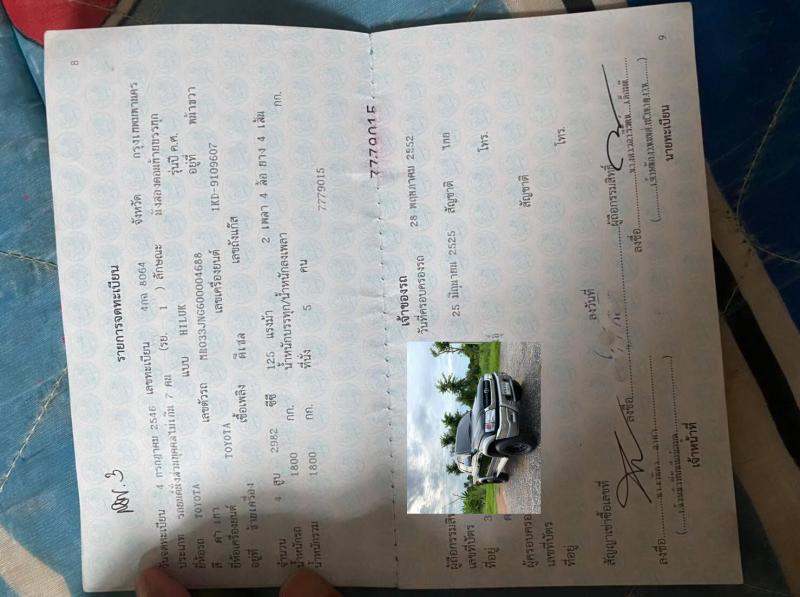 8
กยท. 3
รายการจดทะเบียน
วันจดทะเบียน 4 กรกฎาคม 2546 เลขทะเบียน 4กจ 8064 จังหวัด กรุงเทพมหานคร
ประเภท รถยนต์นั่งส่วนบุคคลไม่เกิน 7 คน (รย. 1 ) ลักษณะ นั่งสองตอนท้ายบรรทุก
ยี่ห้อรถ TOYOTA แบบ HILUX รุ่นปี ค.ศ.
สี ดำ เทา เลขตัวรถ MR033JNG600004688 อยู่ที่ หน้าขวา
ยี่ห้อเครื่องยนต์ TOYOTA เลขเครื่องยนต์ 1KD-9109607
อยู่ที่ ซ้ายเครื่อง เชื้อเพลิง ดีเซล เลขถังแก๊ส
จำนวน 4 สูบ 2982 ซีซี 125 แรงม้า 2 เพลา 4 ล้อ ยาง 4 เส้น
น้ำหนักรถ 1800 กก. น้ำหนักบรรทุก/น้ำหนักลงเพลา กก.
น้ำหนักรวม 1800 กก. ที่นั่ง 5 คน
7779015
7779015
เจ้าของรถ
วันที่ครอบครองรถ 28 พฤษภาคม 2552
ผู้ถือกรรมสิ
เลขที่บัตร 3 25 มิถุนายน 2525 สัญชาติ ไทย
ที่อยู่ โทร.
ผู้ครอบครอ
เลขที่บัตร สัญชาติ
ที่อยู่ โทร.
สัญญาเช่าซื้อเลขที่ ลงวันที่ ผู้ถือกรรมสิทธิ์
ลงชื่อ ลงชื่อ ลงชื่อ
เจ้าหน้าที่ นายทะเบียน
9